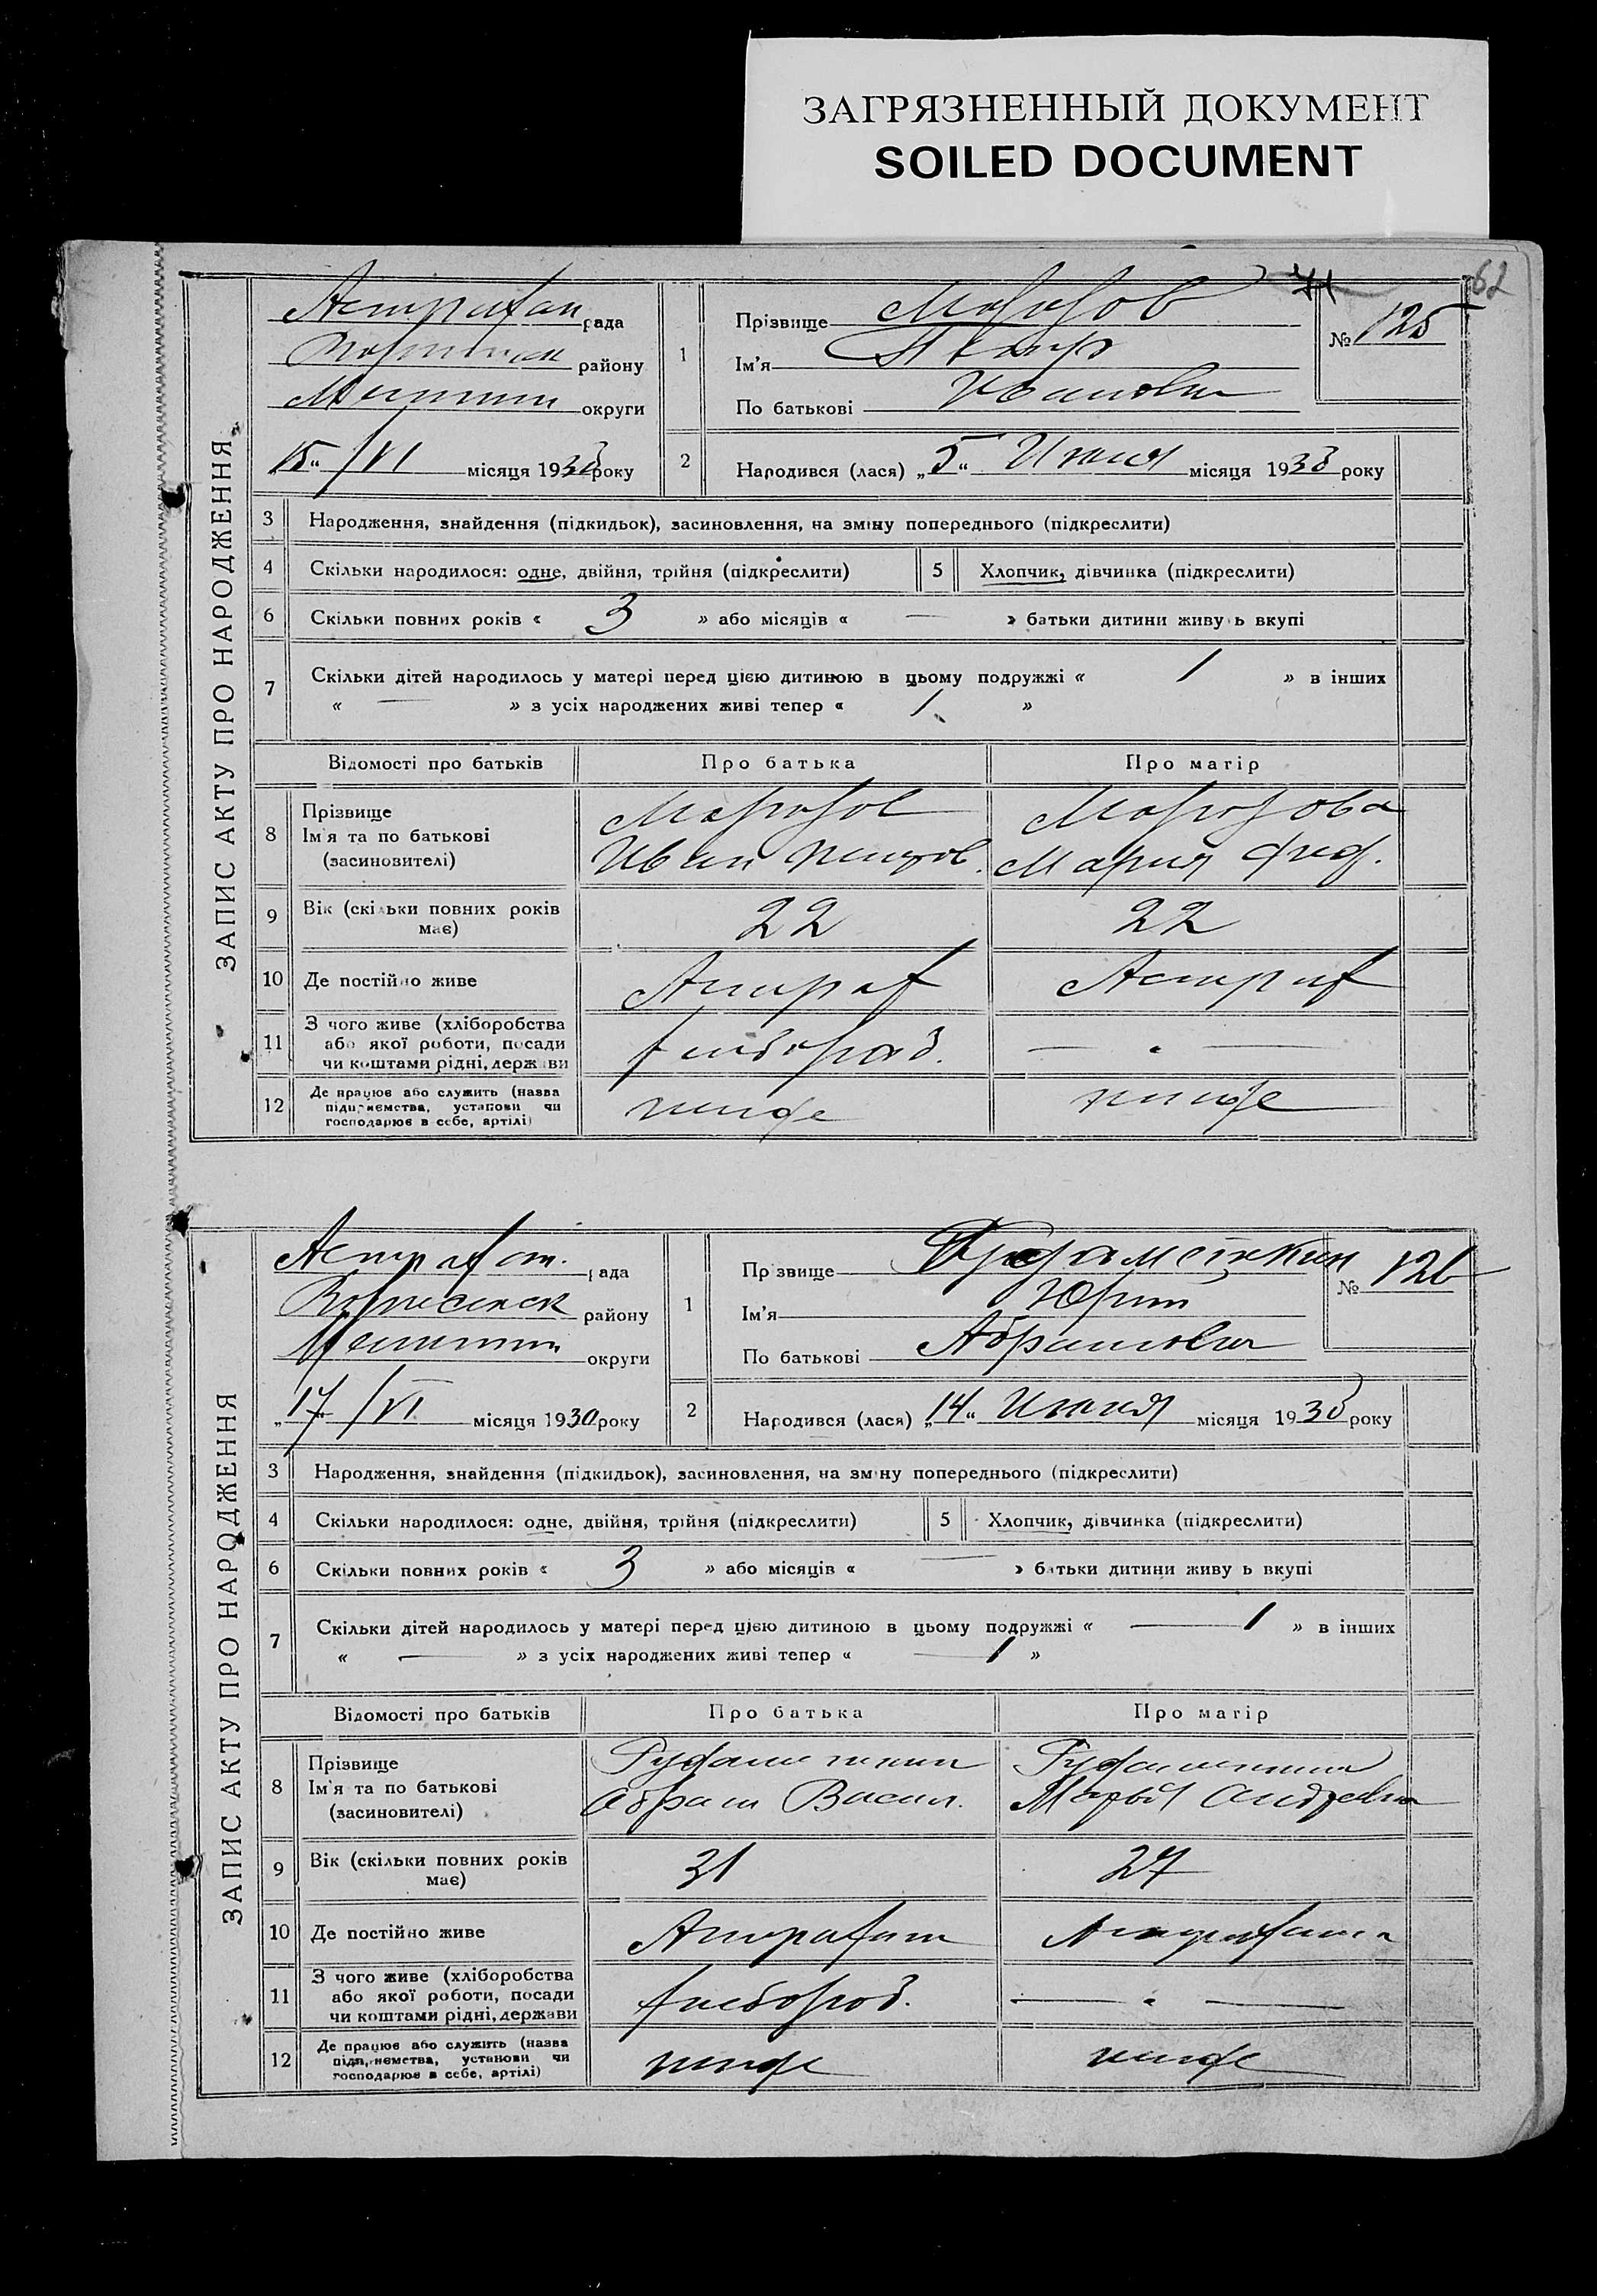 ЗАГРЯЗНЕННЫЙ ДОКУМЕНТ
SOILED DOCUMENT
62
ЗАПИС АКТУ ПРО НАРОДЖЕННЯ
Астрахан рада
району
округи
15 /VI місяця 1930 року
1
Прізвище Морозов
Ім'я Петр
По батькові Иванович
№ 125
2
Народився (лася) „5“ Июня місяця 1930 року
3 Народження, знайдення (підкидьок), засиновлення, на зміну попереднього (підкреслити)
4 Скільки народилося: одне, двійня, трійня (підкреслити) 5 Хлопчик, дівчинка (підкреслити)
6 Скільки повних років « 3 » або місяців « — » батьки дитини живуть вкупі
7 Скільки дітей народилось у матері перед цією дитиною в цьому подружжі « 1 » в інших
« — » з усіх народжених живі тепер « 1 »
Відомості про батьків Про батька Про матір
8 Прізвище
Ім'я та по батькові
(засиновителі)
Морозов
Иван Петров.
Морозова
Мария Фед.
9 Вік (скільки повних років має) 22 22
10 Де постійно живе Астрах Астрах
11 З чого живе (хліборобства
або якої роботи, посади
чи коштами рідні, держави
хлебороб. — " —
12 Де працює або служить (назва
підприємства, установи чи
господарює в себе, артілі)
ЗАПИС АКТУ ПРО НАРОДЖЕННЯ
Астрахан. рада
району
округи
„17“ /VI місяця 1930 року
1
Прізвище
Ім'я Юрий
По батькові Абрамович
№ 126
2
Народився (лася) „14“ Июня місяця 1930 року
3 Народження, знайдення (підкидьок), засиновлення, на зміну попереднього (підкреслити)
4 Скільки народилося: одне, двійня, трійня (підкреслити) 5 Хлопчик, дівчинка (підкреслити)
6 Скільки повних років « 3 » або місяців « — » батьки дитини живуть вкупі
7 Скільки дітей народилось у матері перед цією дитиною в цьому подружжі « — 1 » в інших
« — » з усіх народжених живі тепер « — 1 »
Відомості про батьків Про батька Про матір
8 Прізвище
Ім'я та по батькові
(засиновителі)
Абрам Васил.
Марья Андреевна
9 Вік (скільки повних років має) 31 27
10 Де постійно живе Астрахан
11 З чого живе (хліборобства
або якої роботи, посади
чи коштами рідні, держави
хлебороб. — " —
12 Де працює або служить (назва
підприємства, установи чи
господарює в себе, артілі)